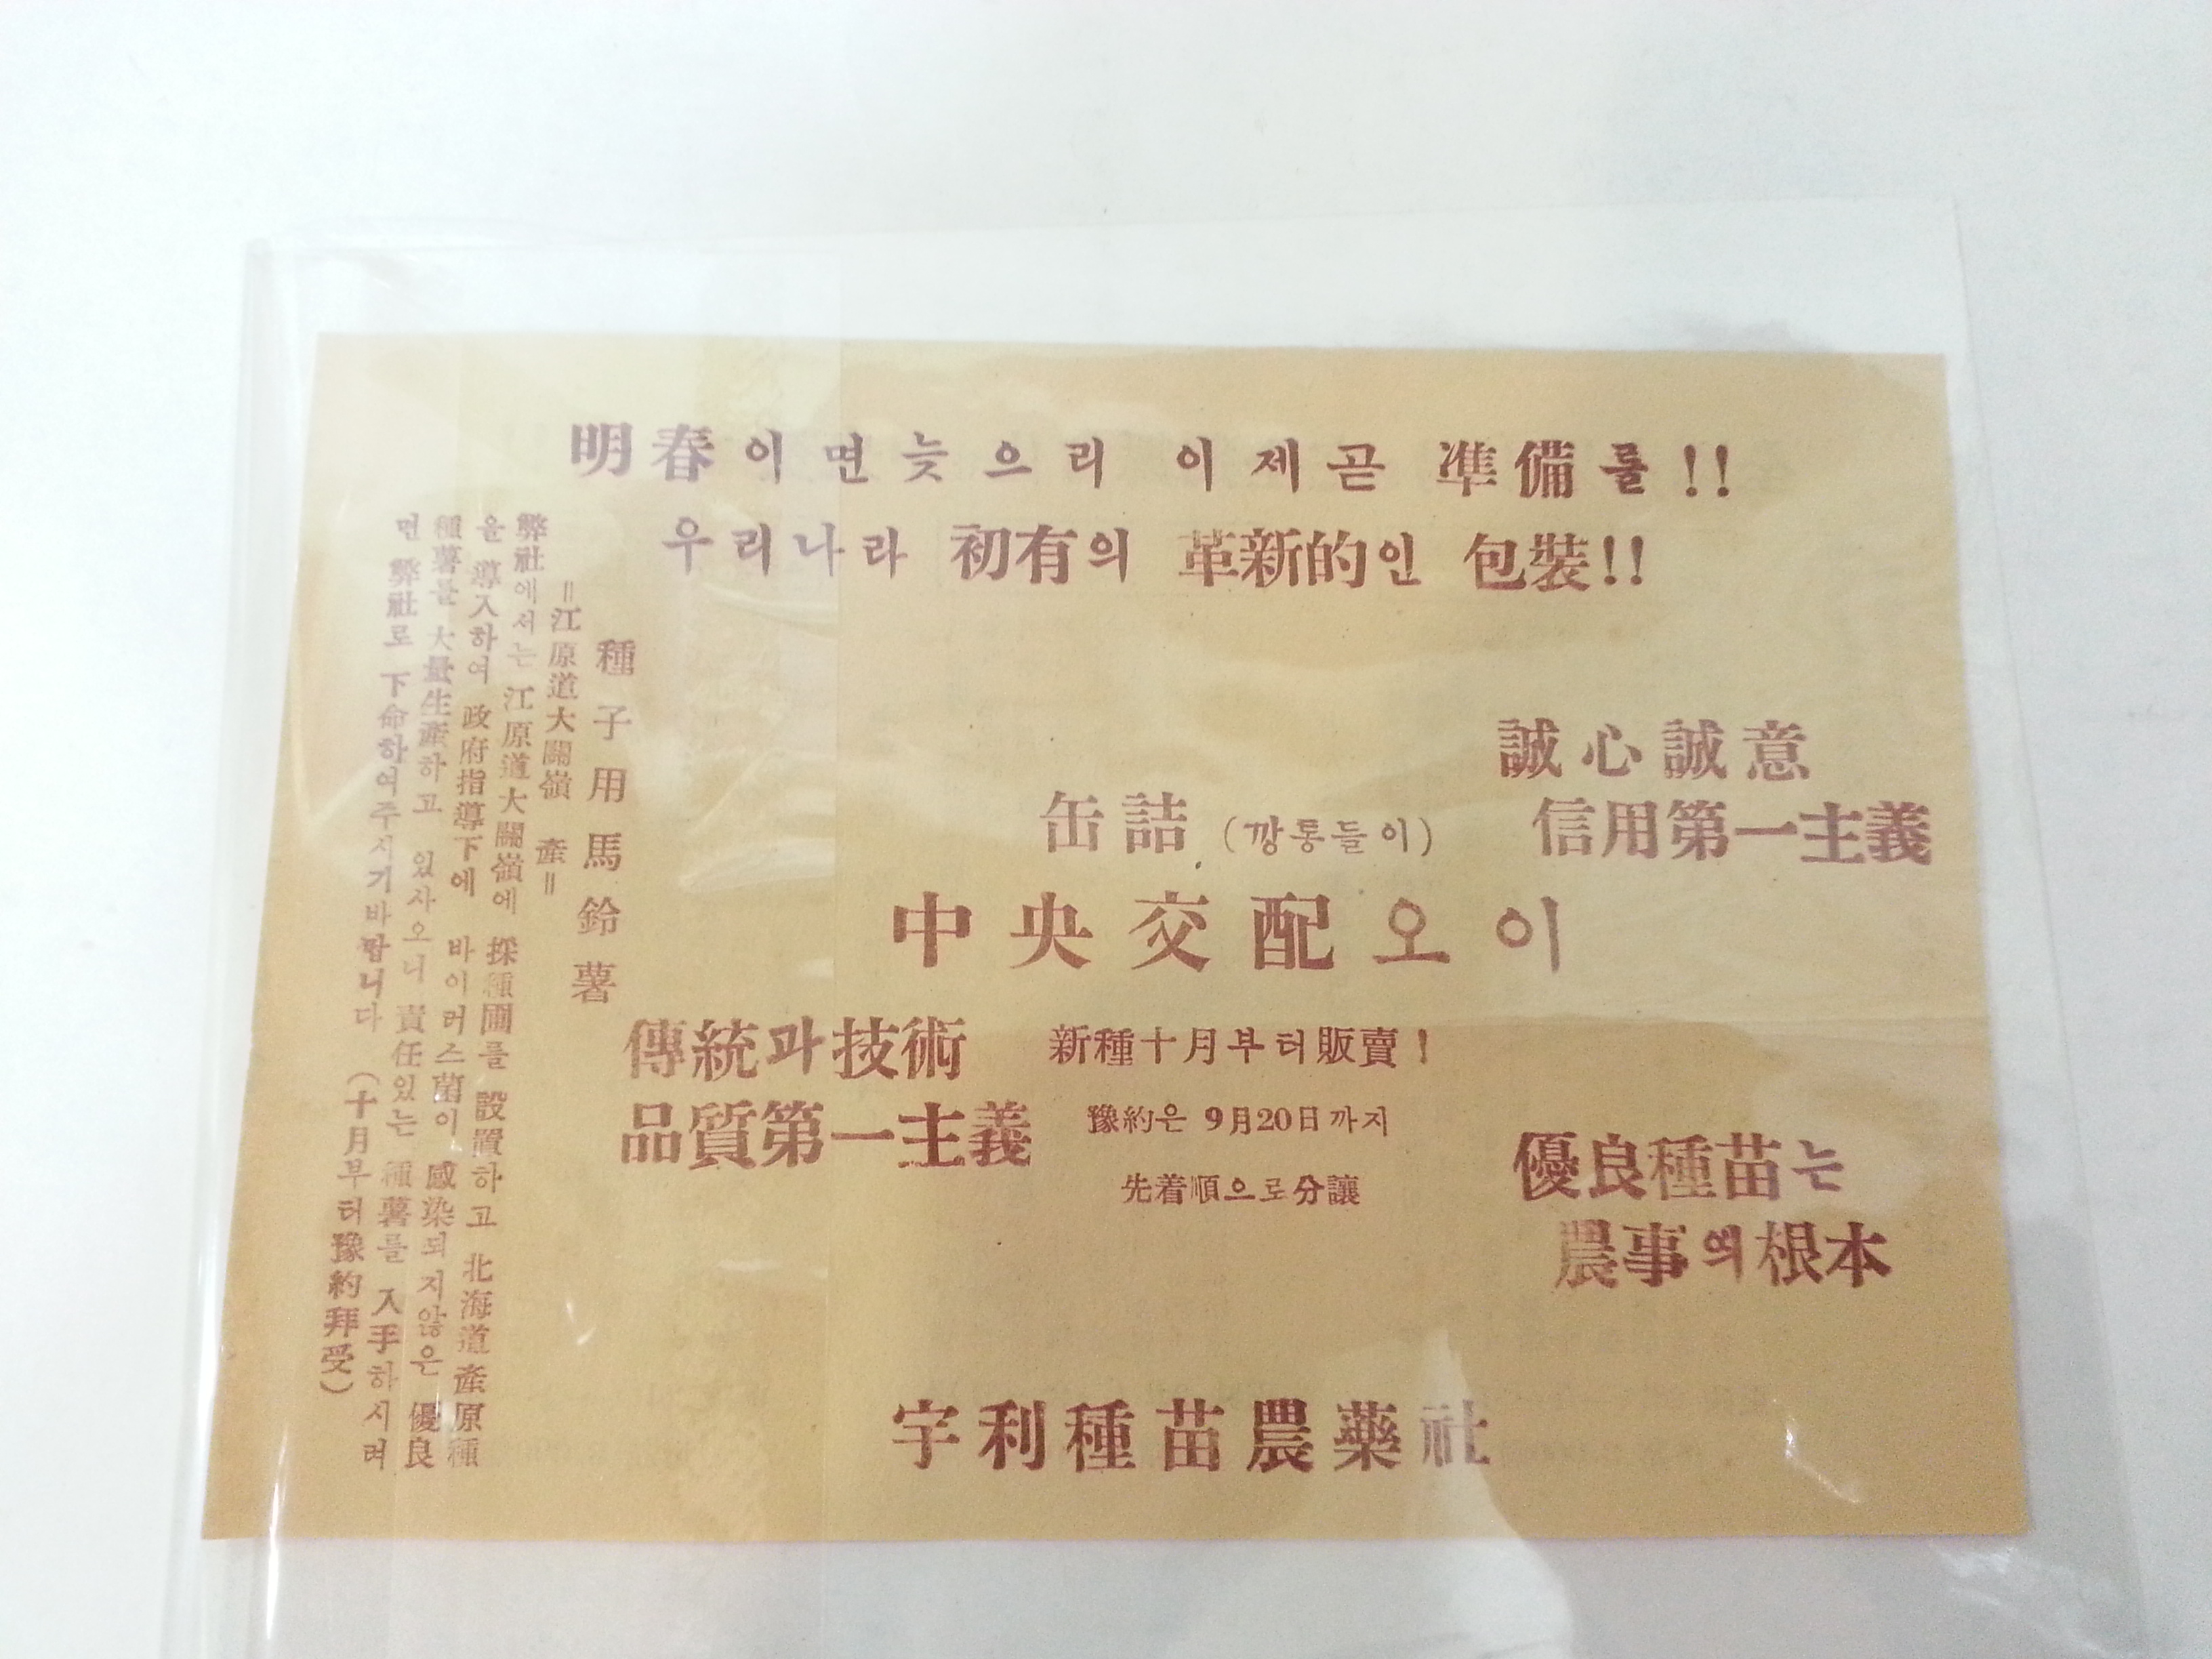 明春이면늦으리 이제곧 準備를!!
우리나라 初有의 革新的인 包裝!!
誠心誠意
信用第一主義
缶詰(깡통들이)
中央交配오이
新種十月부터販賣!
豫約은 9月20日까지
先着順으로分讓
傳統과技術
品質第一主義
優良種苗는
農事의根本
種子用馬鈴薯
=江原道大關嶺 產=
弊社에서는 江原道大關嶺에 採種圃를 設置하고 北海道產原種
을 導入하여 政府指導下에 바이러스菌이 感染되지않은 優良
種薯를 大量生產하고 있사오니 責任있는 種薯를 入手하시려
면 弊社로 下命하여주시기바랍니다 (十月부터豫約拜受)
宇利種苗農藥社